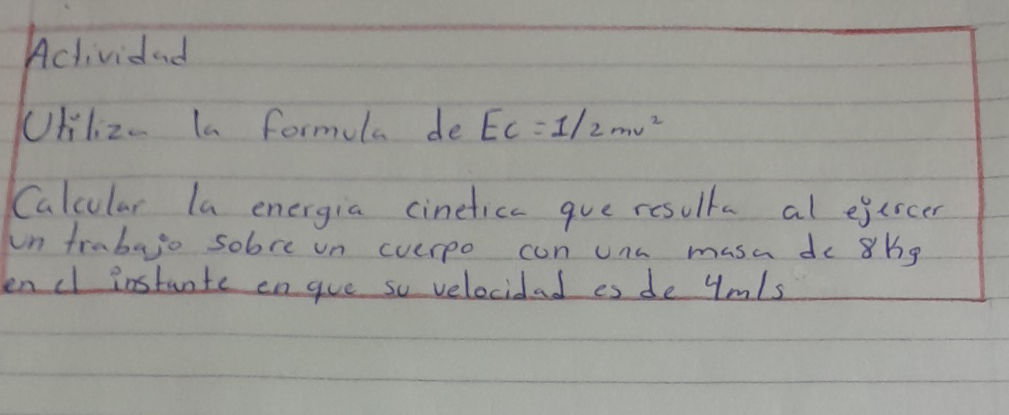 Actividad
Utiliza la formula de Ec=1/2mv²
Calcular la energia cinetica que resulta al ejercer
un trabajo sobre un cuerpo con una masa de 8Kg
en el instante en que su velocidad es de 4m/s